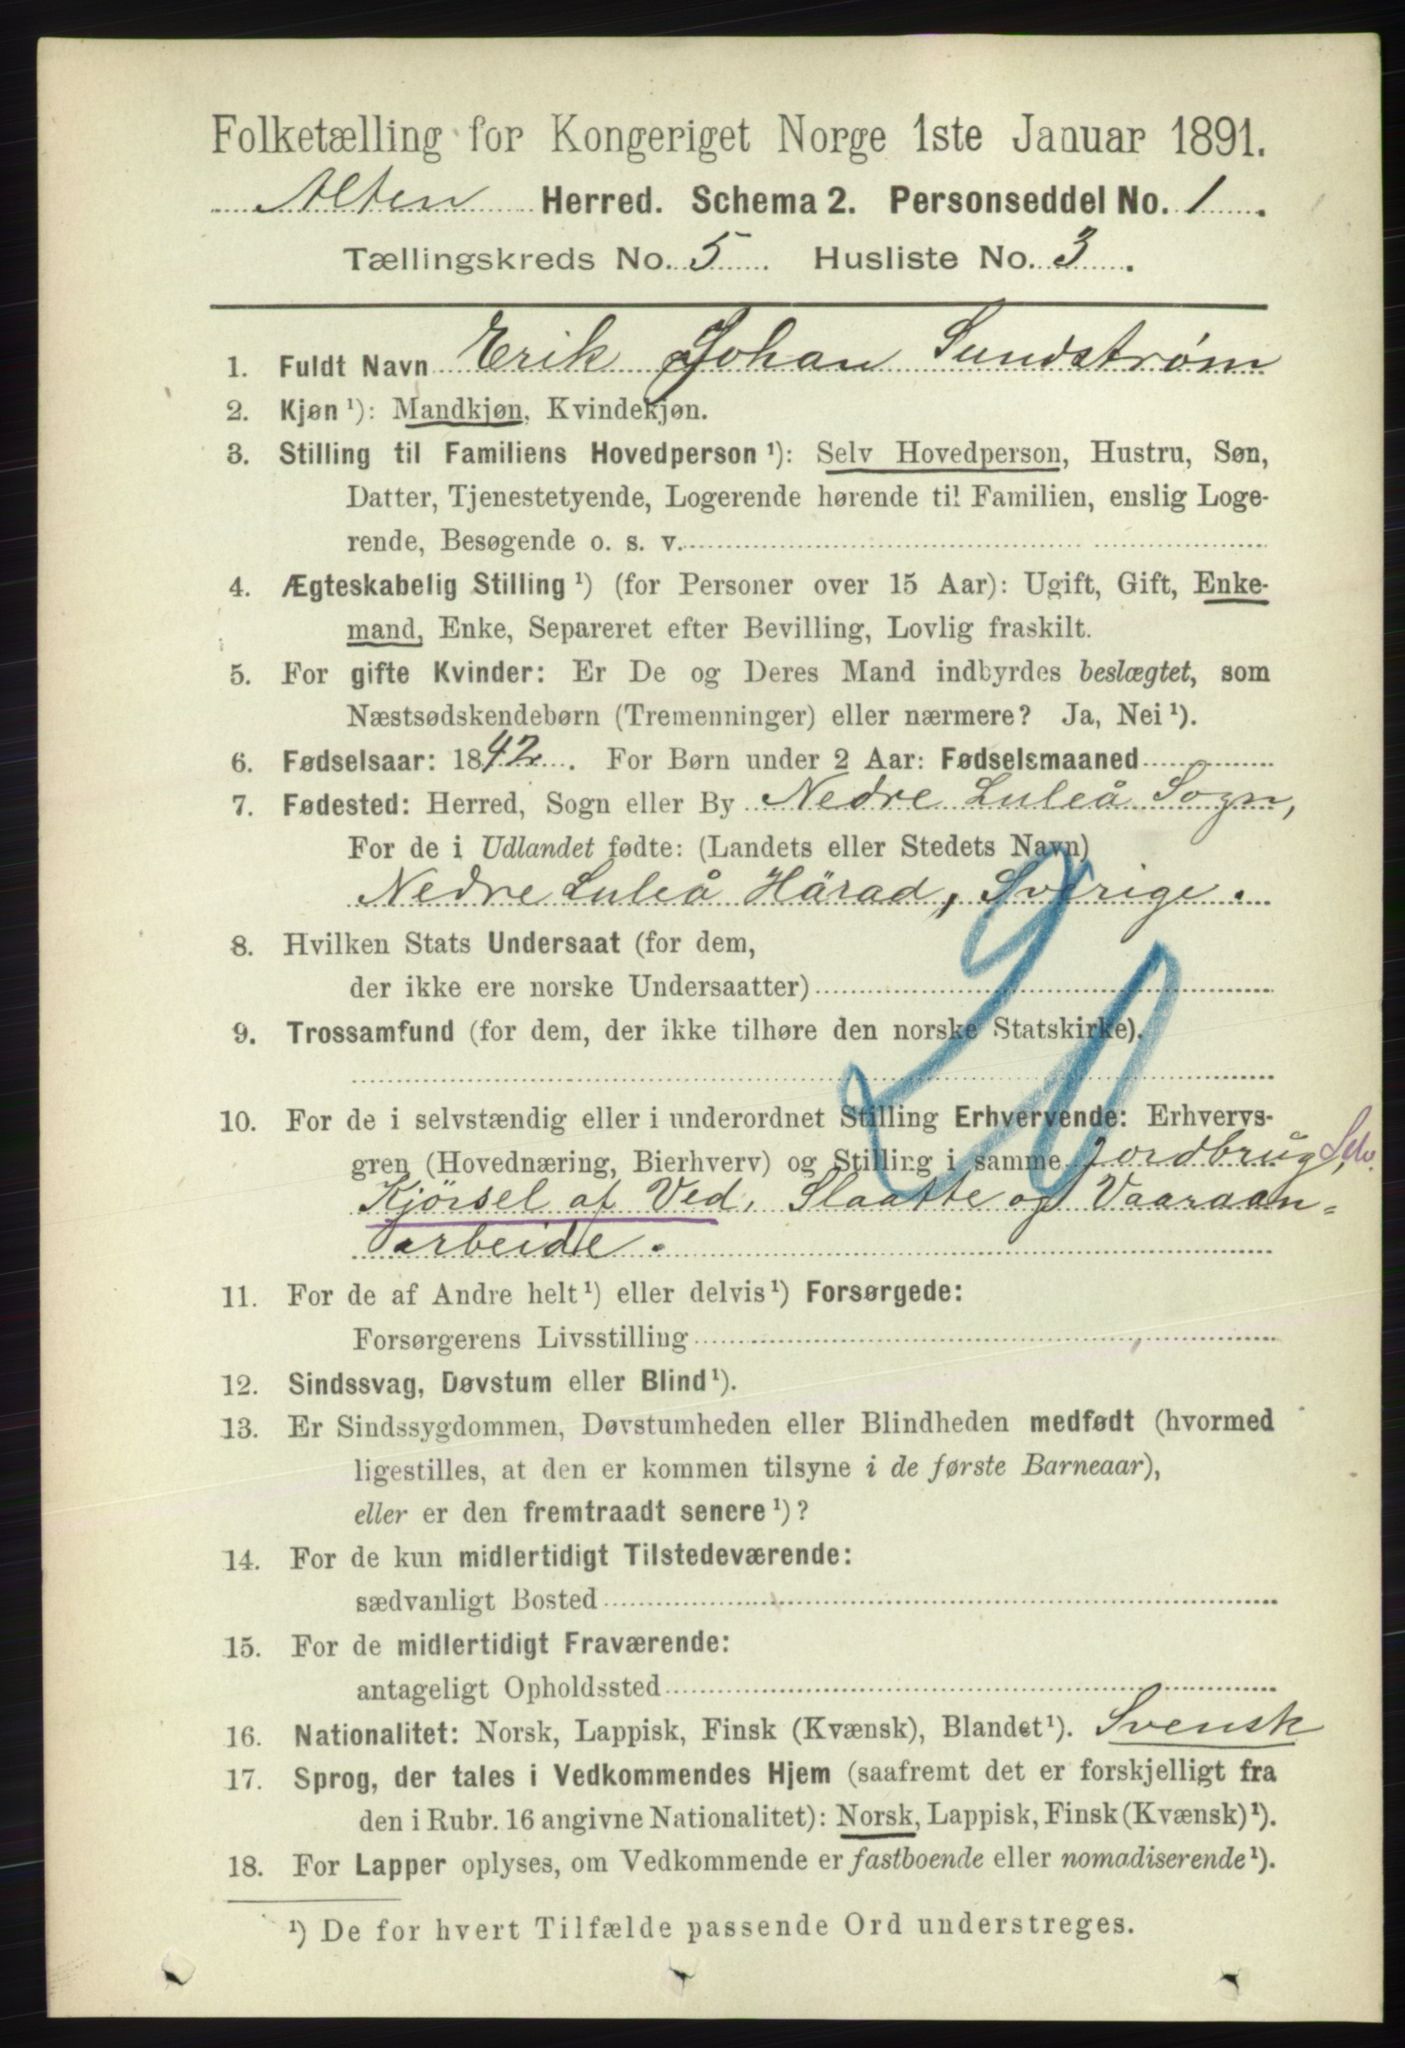 Folketælling for Kongeriget Norge 1ste Januar 1891.
Alten Herred. Schema 2. Personseddel No. 1.
Tællingskreds No. 5. Husliste No. 3.
1. Fuldt Navn Erik Johan Sundstrøm
2. Kjøn ¹): Mandkjøn, Kvindekjøn.
3. Stilling til Familiens Hovedperson ¹): Selv Hovedperson, Hustru, Søn,
Datter, Tjenestetyende, Logerende hørende til Familien, enslig Loge-
rende, Besøgende o. s. v.
4. Ægteskabelig Stilling ¹) (for Personer over 15 Aar): Ugift, Gift, Enke-
mand, Enke, Separeret efter Bevilling, Lovlig fraskilt.
5. For gifte Kvinder: Er De og Deres Mand indbyrdes beslægtet, som
Næstsødskendebørn (Tremenninger) eller nærmere? Ja, Nei ¹).
6. Fødselsaar: 1842. For Børn under 2 Aar: Fødselsmaaned
7. Fødested: Herred, Sogn eller By Nedre Luleå Sogn,
For de i Udlandet fødte: (Landets eller Stedets Navn)
Nedre Luleå Härad, Sverige.
8. Hvilken Stats Undersaat (for dem,
der ikke ere norske Undersaatter)
9. Trossamfund (for dem, der ikke tilhøre den norske Statskirke).
10. For de i selvstændig eller i underordnet Stilling Erhvervende: Erhvervs-
gren (Hovednæring, Bierhverv) og Stilling i samme Jordbrug, Selv.
Kjørsel af Ved, Slaatte og Vaaraan=
arbeide.
11. For de af Andre helt ¹) eller delvis ¹) Forsørgede:
Forsørgerens Livsstilling
12. Sindssvag, Døvstum eller Blind ¹).
13. Er Sindssygdommen, Døvstumheden eller Blindheden medfødt (hvormed
ligestilles, at den er kommen tilsyne i de første Barneaar),
eller er den fremtraadt senere ¹)?
14. For de kun midlertidigt Tilstedeværende:
sædvanligt Bosted
15. For de midlertidigt Fraværende:
antageligt Opholdssted
16. Nationalitet: Norsk, Lappisk, Finsk (Kvænsk), Blandet ¹). Svensk
17. Sprog, der tales i Vedkommendes Hjem (saafremt det er forskjelligt fra
den i Rubr. 16 angivne Nationalitet): Norsk, Lappisk, Finsk (Kvænsk) ¹).
18. For Lapper oplyses, om Vedkommende er fastboende eller nomadiserende ¹).
¹) De for hvert Tilfælde passende Ord understreges.